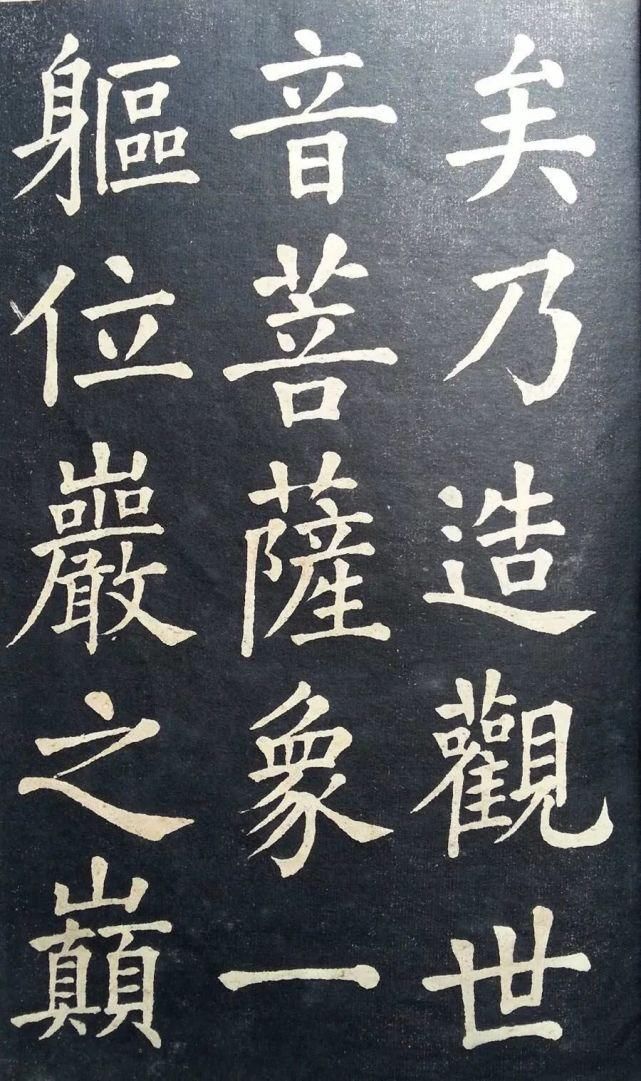 矣乃造觀世
音菩薩象一
軀位巖之巔